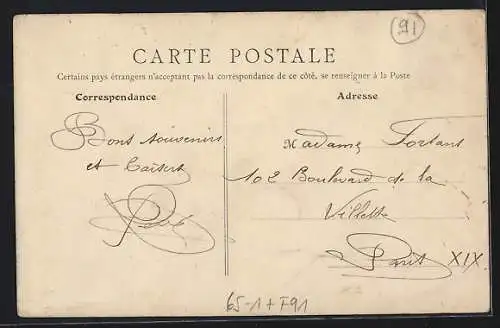 91
CARTE POSTALE
Certains pays étrangers n'acceptant pas la correspondance de ce côté, se renseigner à la Poste
Correspondance
Bons souvenirs
et
Adresse
Madame Fortant
102 Boulevard de la
Villette
Paris XIX.
65-1+F91